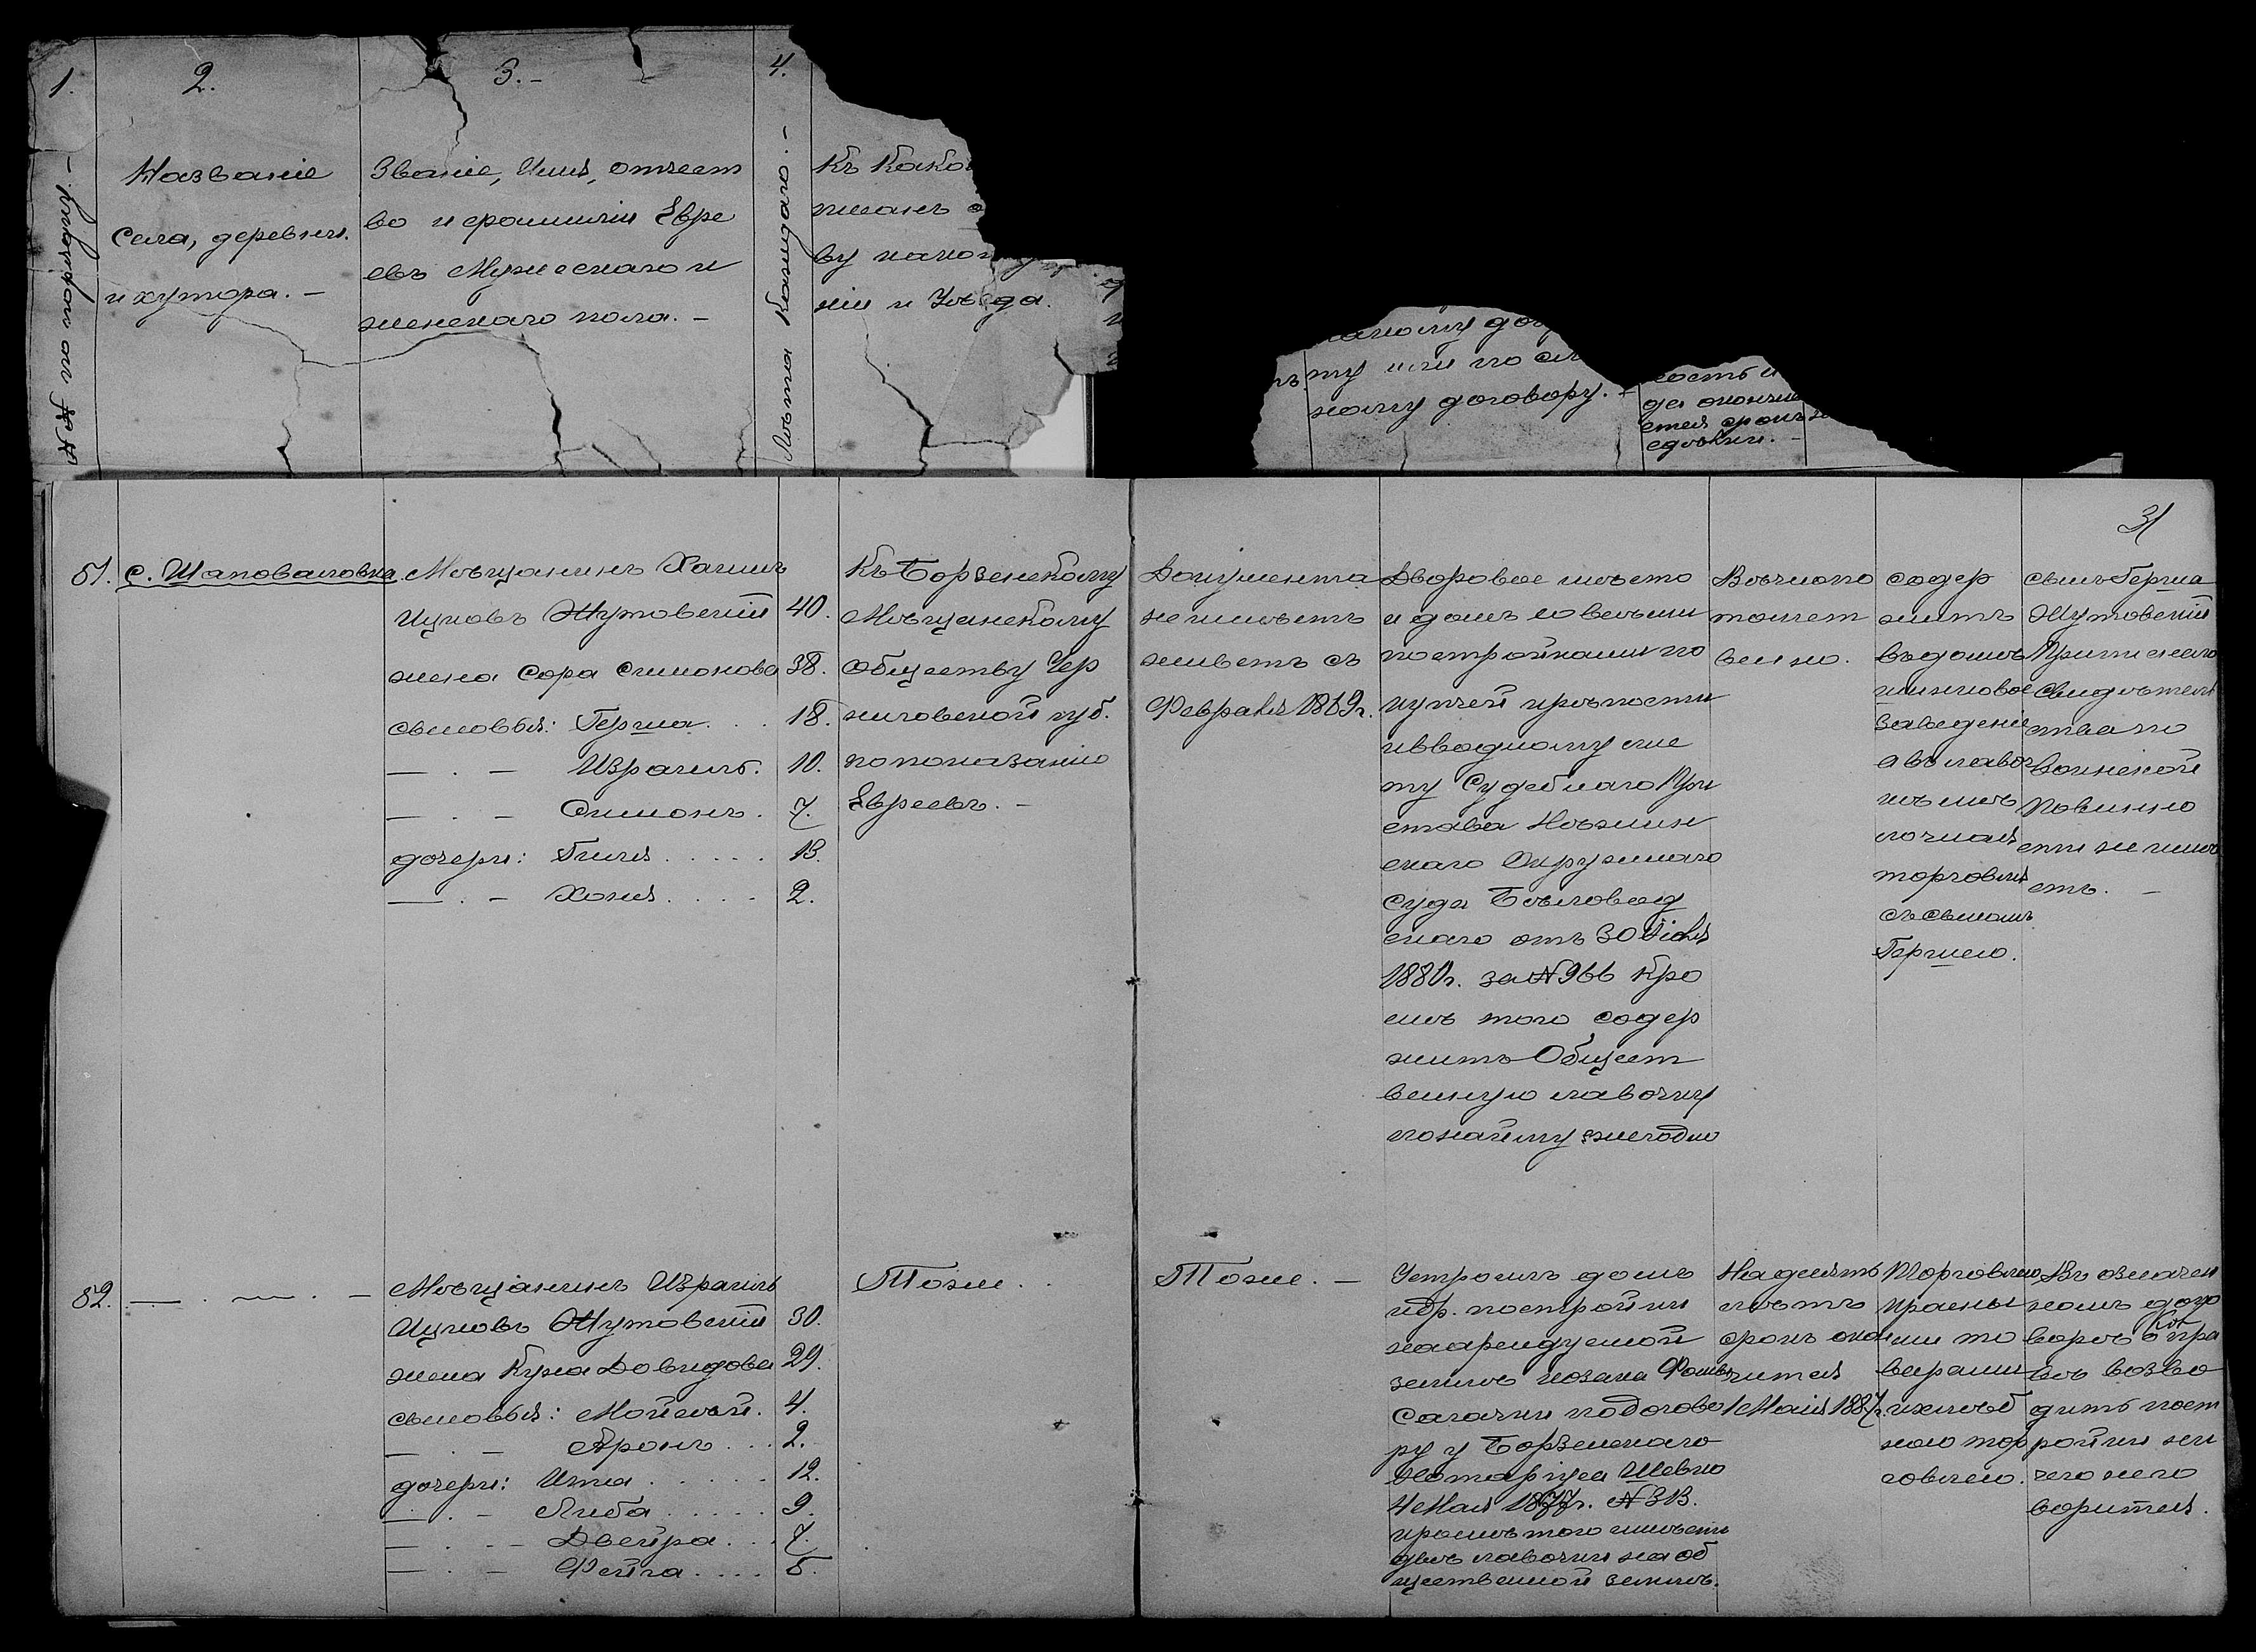 1.
2.
3.-
4.
- №№ по порядку.
Названіе
Села, деревни.
и хутора. -
Званіе, Имя, отчест
во и фамиліи Евре
евъ Мужескаго и
женскаго пола. -
Лѣта каждаго. -
Къ како
писанъ о
ву како
ніи и Уѣзда.
ному дог
ту или по сл
ному договору. -
ность и
да оканчи
ется срокъ
сдѣлки. -
31
81.
с. Шаповаловка.
Мѣщанинъ Хаимъ
Ицковъ Жутовскій 40.
жена Сора Симонова 38.
сыновья: Герша . . 18.
— . — Израиль. 10.
— . — Симонъ. 7.
дочери: Гиля . . . . . 13.
— . — Ханя . . . . 2.
Къ Борзенскому
Мѣщанскому
Обществу Чер
ниговской губ.
по показанію
Евреевъ. -
Документа
не имѣетъ
живетъ съ
Февраля 1879г.
Дворовое мѣсто
и домъ со всѣми
постройками по
купчей крѣпости
и вводному лис
ту Судебнаго При
става Нѣжин
скаго Окружнаго
Суда Бѣловод
скаго отъ 30 Юля
1880г. за № 966 Кро
мѣ того содер
житъ Общест
венную лавочку
по найму ежегодно
Вѣчно по
томст
венно.
содер
житъ
въ домѣ
шинковое
заведеніе
а въ лавоч
кѣ мѣ
лочная
торговля
съ сыномъ
Гершею.
сынъ Герша
Жутовскій
Приписнаго
свидѣтель
тва по
воинской
повинно
сти не имѣ
етъ. -
82. — . — . —
Мѣщанинъ Израиль
Ицковъ Жутовскій 30.
жена Куна Довидова 29.
сыновья: Мойсѣй. 4.
— . — Аронъ . . . 2.
дочери: Итта . . . . . 12.
— . — Либа . . . . . 9.
— . — Двейра . . . 7.
— . — Фейга . . . . 5.
Тоже. .
Тоже. —
Устроилъ домъ
и др. постройки
на арендуемой
землѣ козака Фомы
Сагачки по догово
ру у Борзенскаго
Нотаріуса Шевко
4 Мая 1877г. № 313.
кромѣ того имѣетъ
двѣ лавочки на об
щественной землѣ.
На десять
лѣтъ
срокъ окан
чится
1 Мая 1887г.
Торговлею
красны
ми то
варами
и хлѣб
ною тор
говлею.
Въ означен
номъ дого
ворѣ о пра
вѣ возво
дить пост
ройки ни
чего не го
ворится.